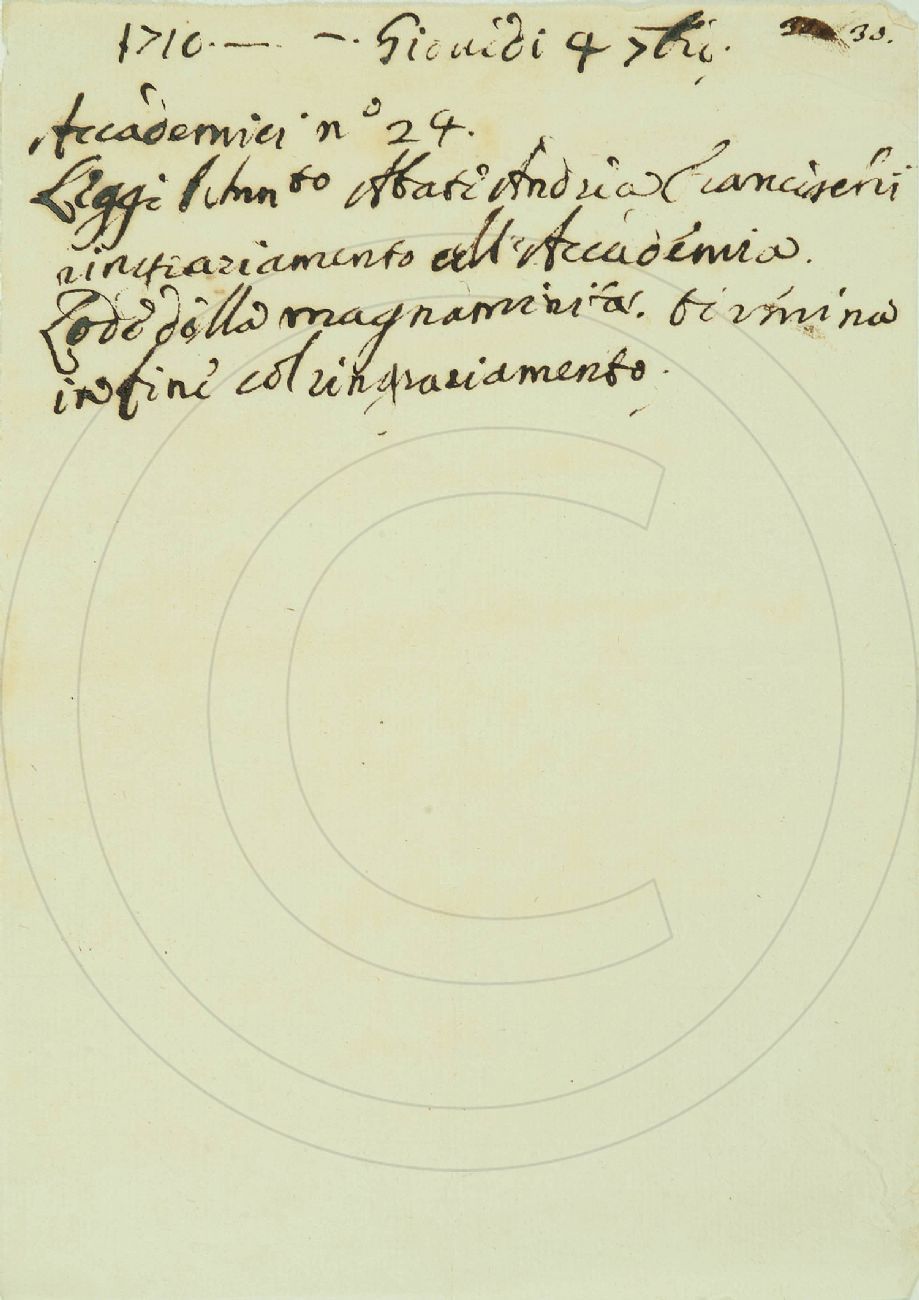 1710. — . — . Giouedi 4 7bre. 30.
Accademici n° 24.
Legge Abate Andrea Franceschi
ringraziamento all'Accademia.
Lode della magnanimità. termina
infine col ringraziamento.